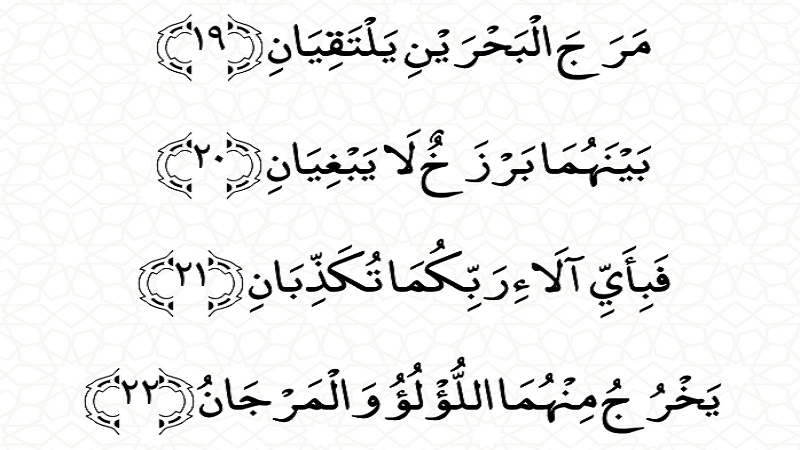 مَرَجَ الْبَحْرَيْنِ يَلْتَقِيَانِ ﴿١٩﴾
بَيْنَهُمَا بَرْزَخٌ لَا يَبْغِيَانِ ﴿٢٠﴾
فَبِأَيِّ آلَاءِ رَبِّكُمَا تُكَذِّبَانِ ﴿٢١﴾
يَخْرُجُ مِنْهُمَا اللُّؤْلُؤُ وَالْمَرْجَانُ ﴿٢٢﴾